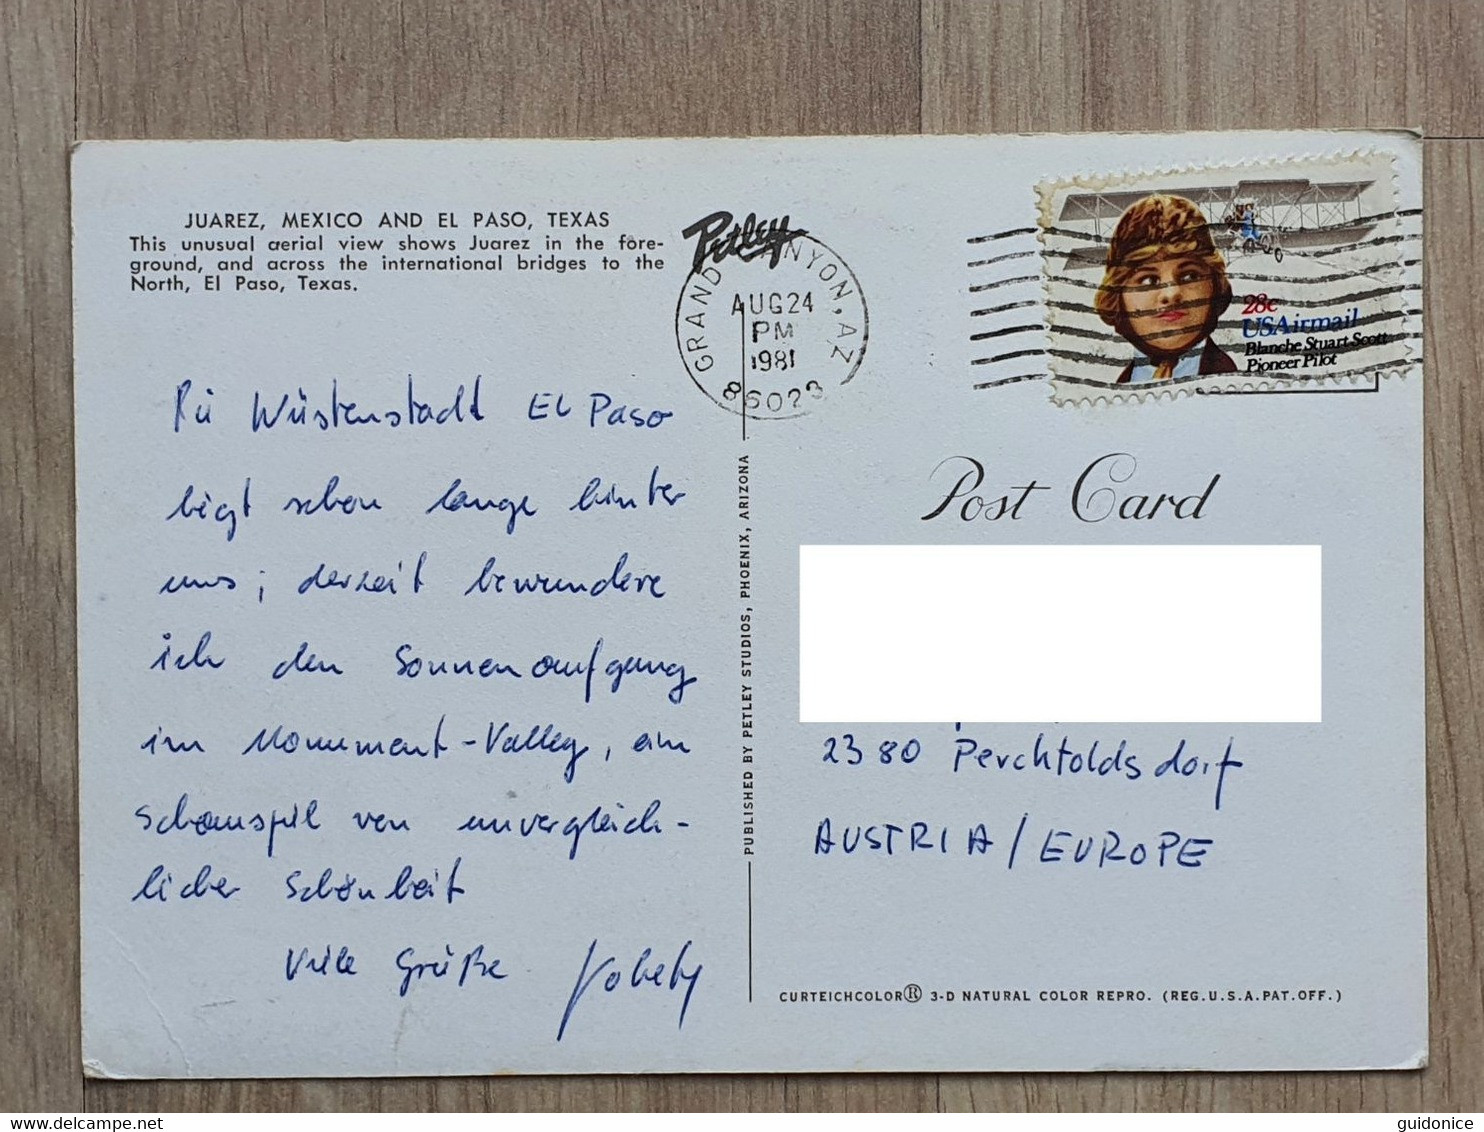 JUAREZ, MEXICO AND EL PASO, TEXAS
This unusual aerial view shows Juarez in the fore-
ground, and across the international bridges to the
North, El Paso, Texas.
Petley
GRAND CANYON, AZ
AUG 24
PM
1981
86023
28c
USAirmail
Blanche Stuart Scott
Pioneer Pilot
Wüstenstadt EL Paso
liegt schon lange hinter
uns; derzeit bewundere
ich den Sonnenaufgang
im Monument-Valley, ein
Schauspiel von unvergleich-
licher Schönheit
Viele Grüße
PUBLISHED BY PETLEY STUDIOS, PHOENIX, ARIZONA
Post Card
2380 Perchtoldsdorf
AUSTRIA / EUROPE
CURTEICHCOLOR® 3-D NATURAL COLOR REPRO. (REG.U.S.A.PAT.OFF.)
guidonice